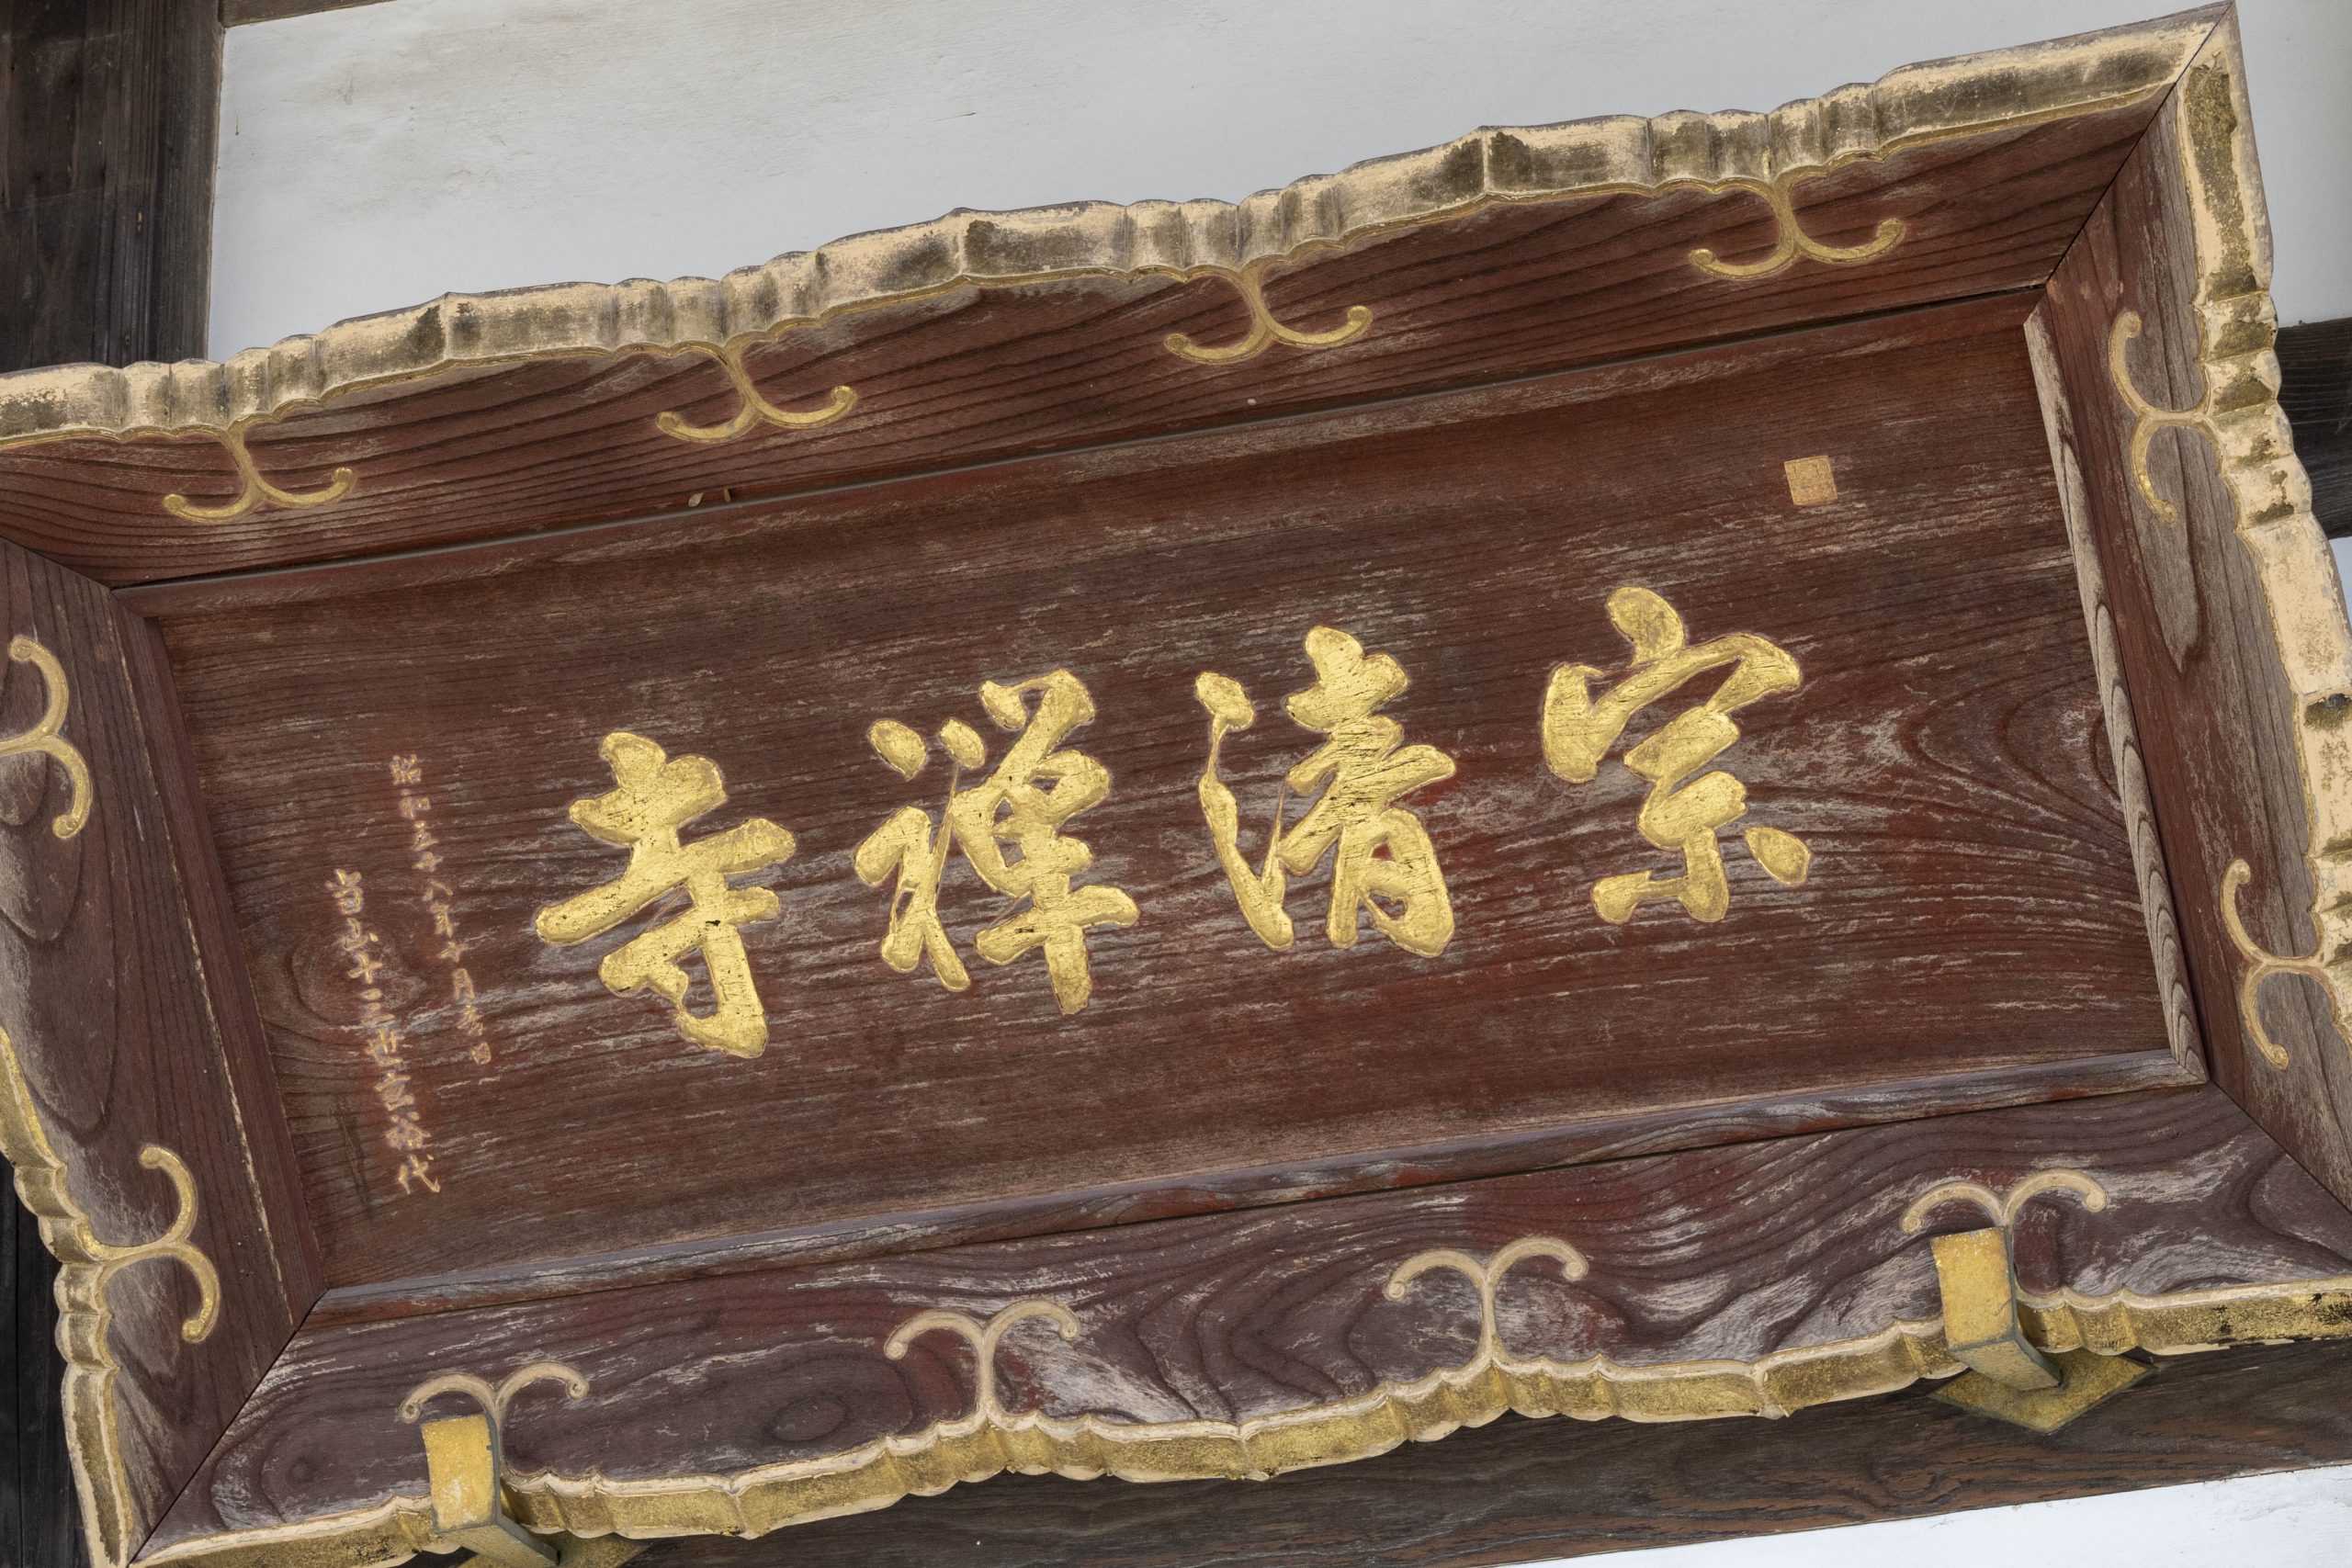 宗清禅寺
昭和五十八年十月吉日
当山十三世宗裕代